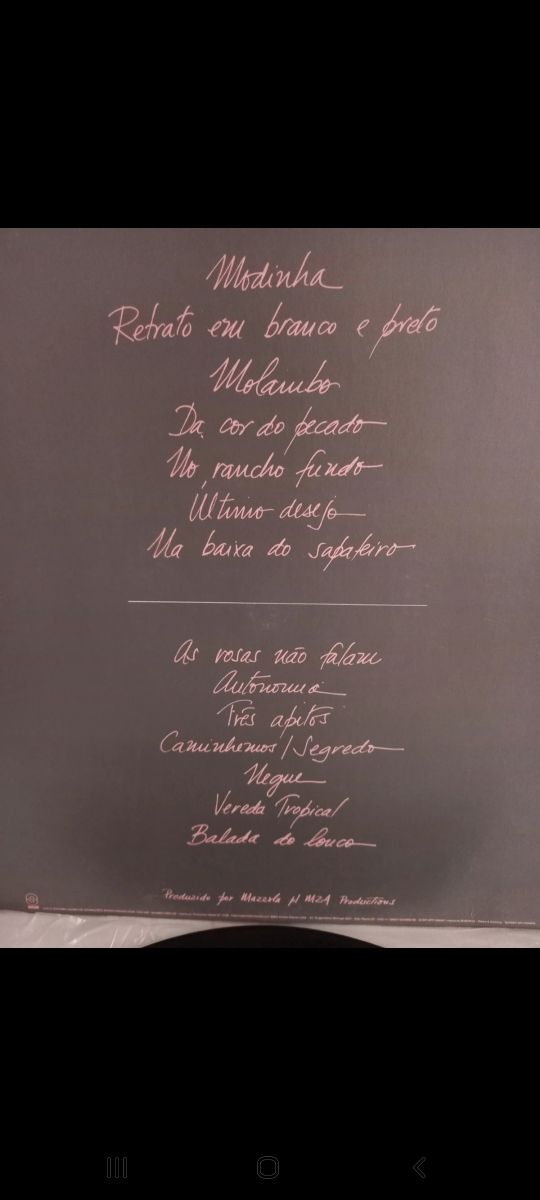 Modinha
Retrato em branco e preto
Molambo
Da cor do pecado
No rancho fundo
Último desejo
Na baixa do sapateiro
As rosas não falam
Autonomia
Três apitos
Caminhemos / Segredo
Negue
Vereda Tropical
Balada do louco
Produzido por Mazzola p/ MZA Productions